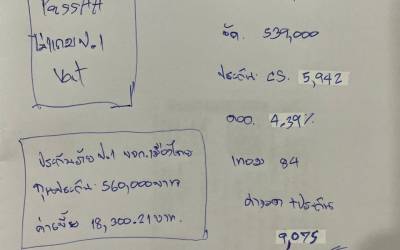 ไม่แถม ป.1
Vat
ประกันภัย ป.1 บจก.เมืองไทย
ทุนประกัน 560,000 บาท
ค่าเบี้ย 18,300.21 บาท.
จัด. 539,000
ประกัน CS. 5,942
ดอก. 4.39%
เทอม 84
ค่างวด + ประกัน
9,075